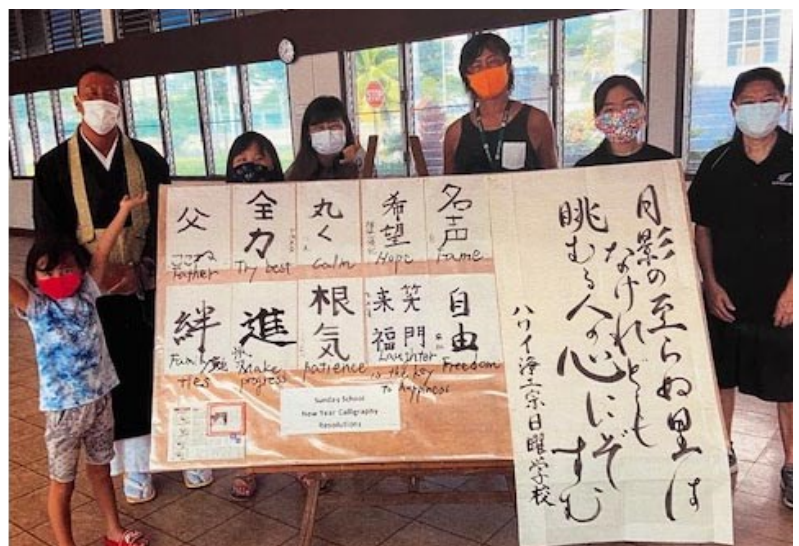 STOP
父
Father
全力
Try best
丸く
Calm
希望
Hope
名声
Fame
絆
Family
ties
進
Make
progress
根気
patience
笑門
来福
Laughter
is the key
To happiness
自由
Freedom
Sunday School
New Year Calligraphy
Resolutions
月影の至らぬ里は
なけれども
眺むる人の心にぞ
すむ
ハワイ浄土宗日曜学校